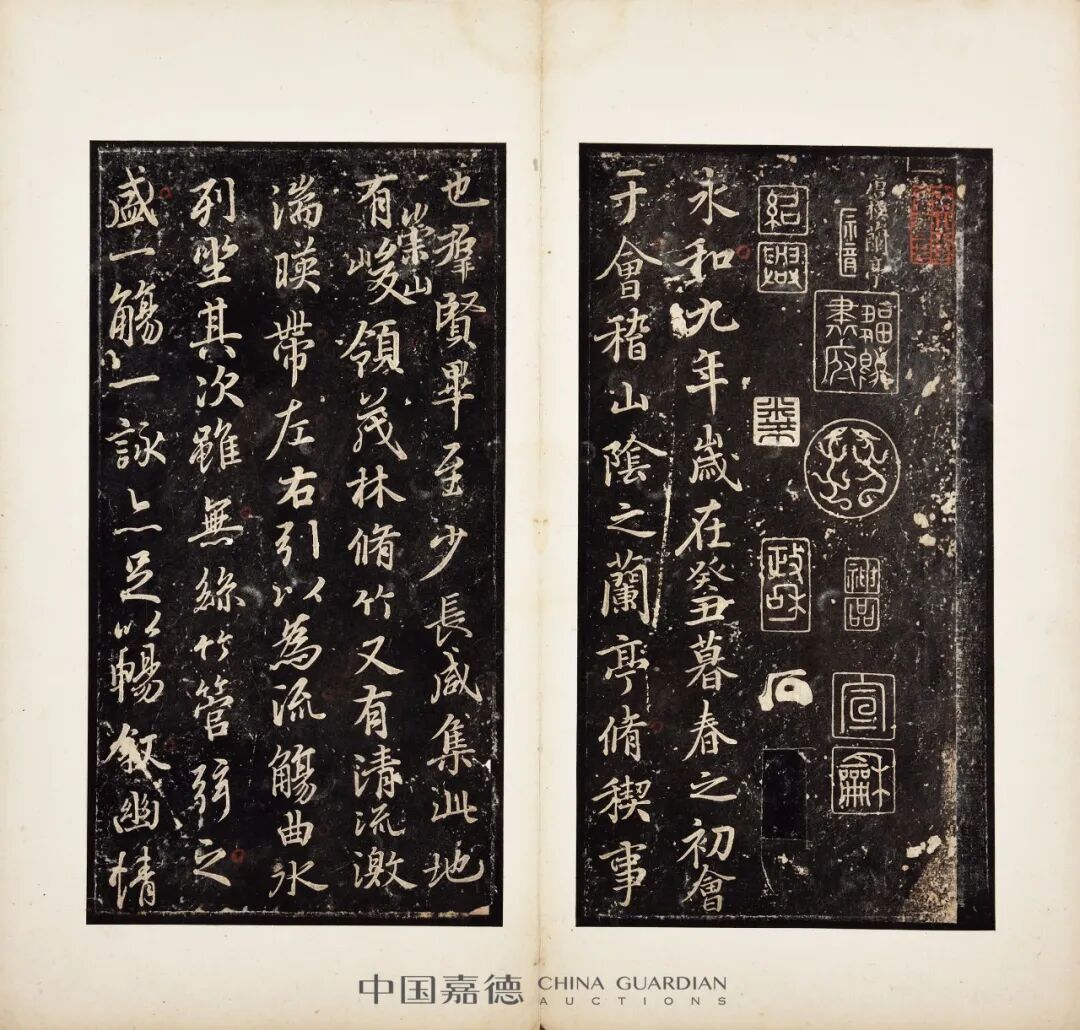 紹興
政和
宣和
永和九年歲在癸丑暮春之初會
于會稽山陰之蘭亭脩稧事
也羣賢畢至少長咸集此地
有崇山峻領茂林脩竹又有清流激
湍暎帶左右引以為流觴曲水
列坐其次雖無絲竹管弦之
盛一觴一詠亦足以暢敘幽情
中国嘉德 CHINA GUARDIAN
AUCTIONS